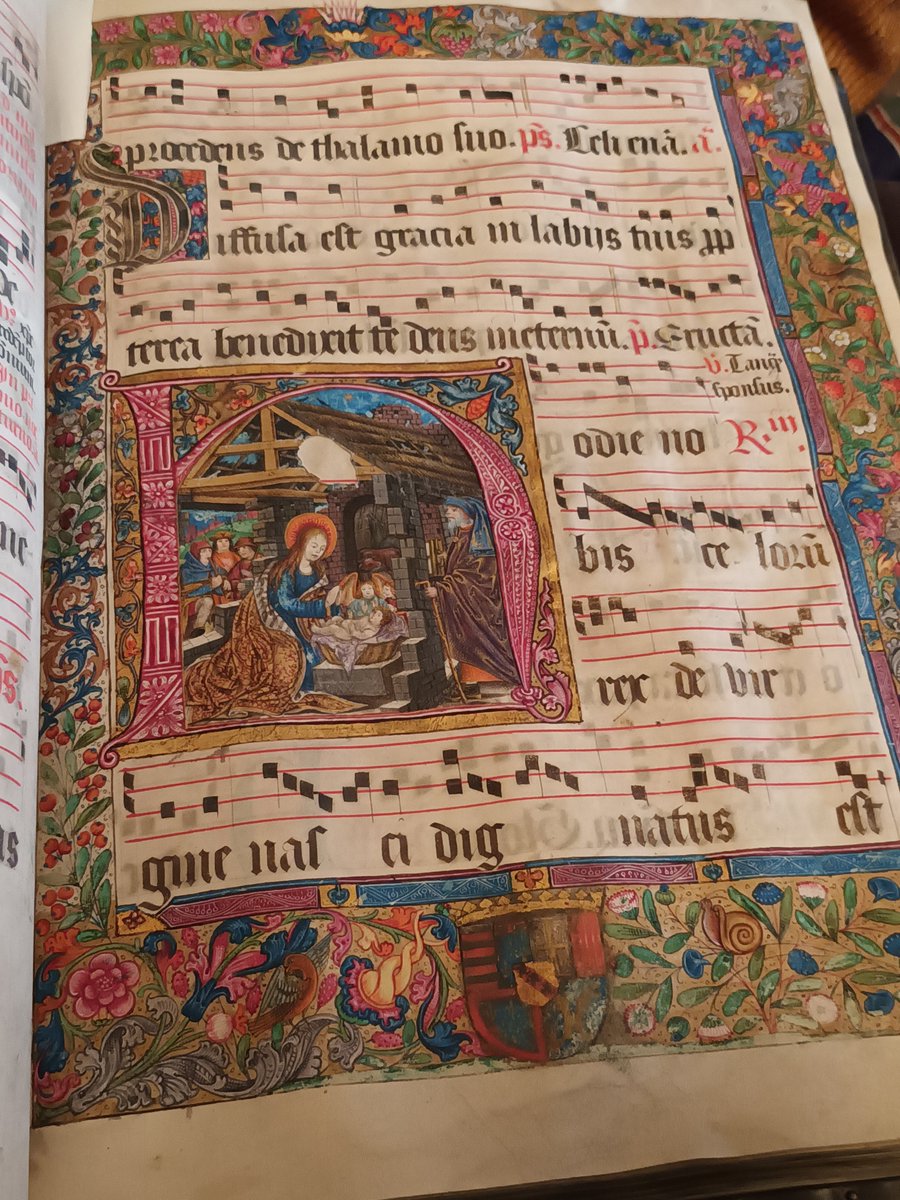 procedens de thalamo suo. p̄s. Celi enā. ā.
Diffusa est gracia in labijs tuis pp
terea benedixit te deus ineternū. p̄. Eructā.
v̄. Tanqȝ
sponsus.
Hodie no R.iii.
bis ce lorū
rex de vir
gine nas ci dig natus est